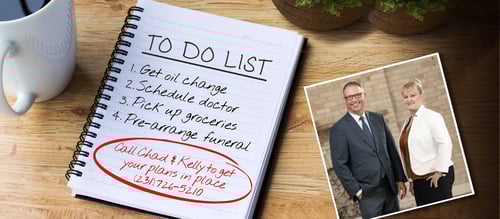 TO DO LIST
1. Get oil change
2. Schedule doctor
3. Pick up groceries
4. Pre-arrange funeral
Call Chad & Kelly to get
your plans in place
(231)726-5210